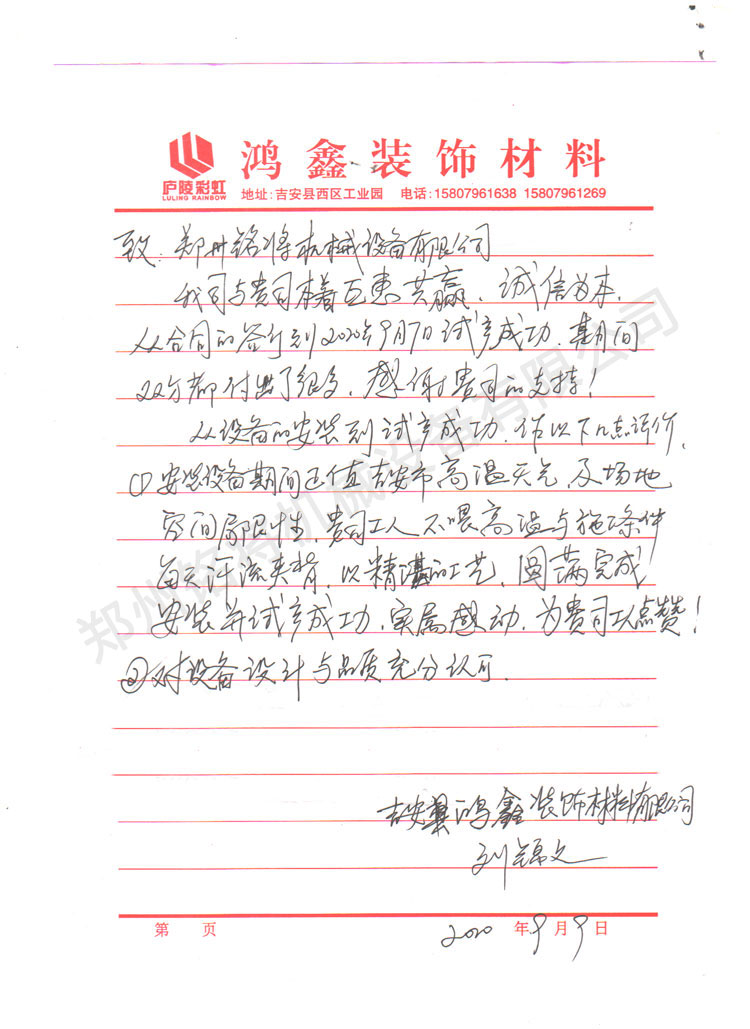 鸿鑫装饰材料
庐陵彩虹
LULING RAINBOW
地址:吉安县西区工业园 电话:15807961638 15807961269
致：郑州铭将机械设备有限公司
我司与贵司本着互惠共赢、诚信为本，
从合同的签订到2020年9月7日试产成功，期间
双方都付出了很多，感谢贵司的支持！
从设备的安装到试产成功，作以下几点评价，
①安装设备期间正值吉安市高温天气及场地
空间局限性，贵司工人不畏高温与施条件
每天汗流夹背，以精湛的工艺，圆满完成
安装并试产成功，实属感动，为贵司工人点赞！
②对设备设计与品质充分认可.
吉安县鸿鑫装饰材料有限公司
刘锦文
第 页 2020 年 9 月 9 日
郑州铭将机械设备有限公司